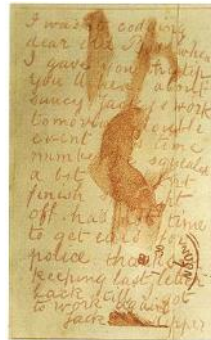 I was not codding
dear old Boss when
I gave you the tip
you'll hear about
saucy Jacky s work
tomorrow double
event this time
number squealed
a bit
finish
off. had not time
to get ears for
police thanks for
keeping last letter
back till I got
to work again
Jack Ripper